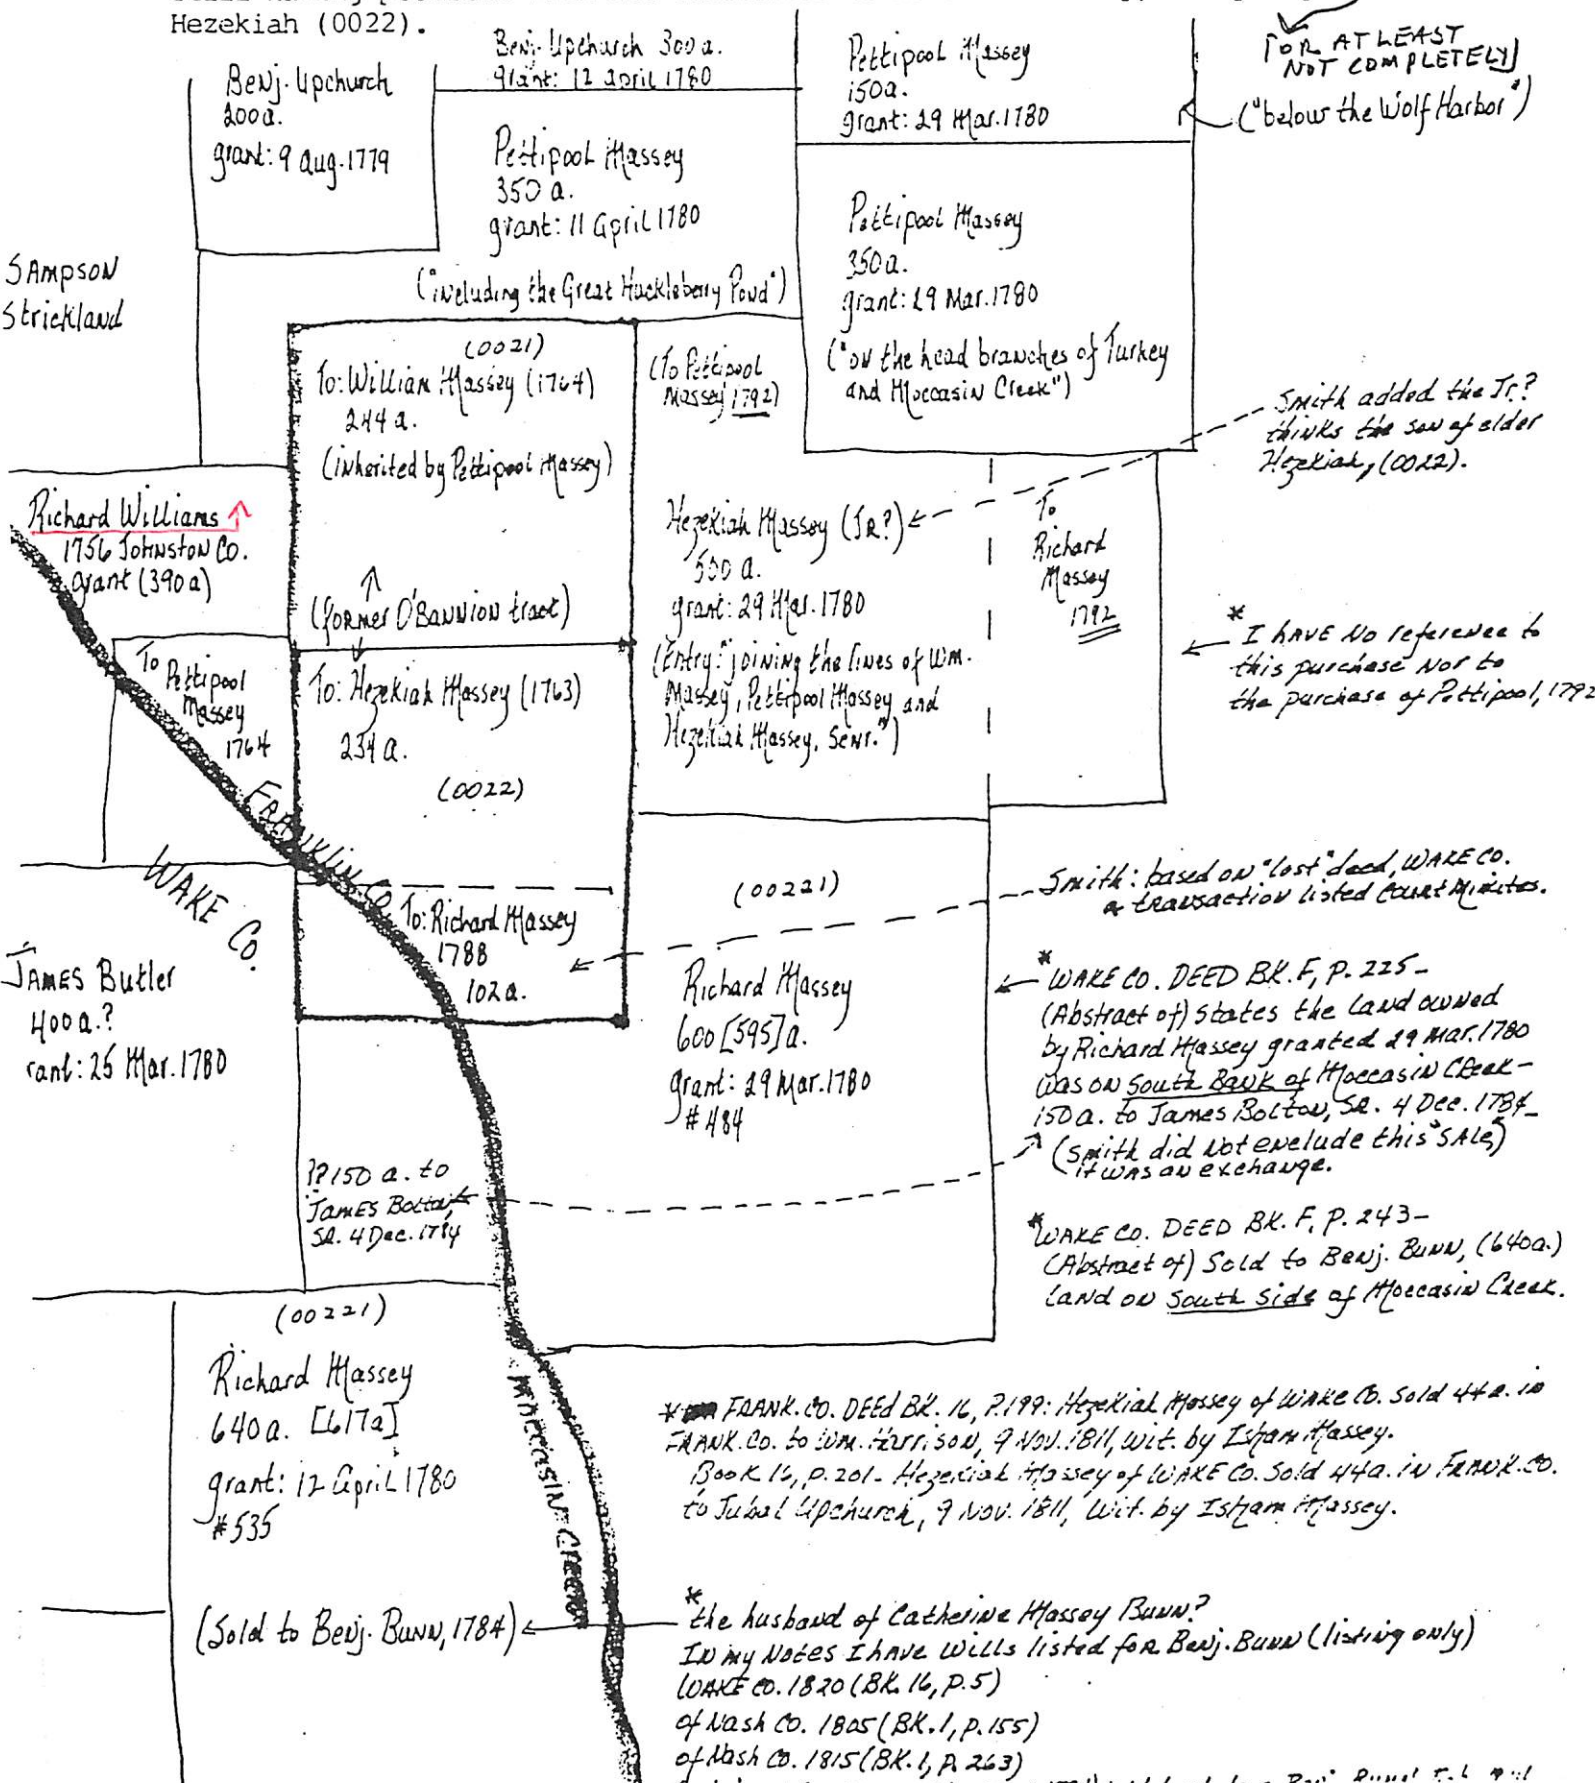 Hezekiah (0022).
[OR AT LEAST
NOT COMPLETELY]
("below the Wolf Harbor")
Benj. Upchurch
200a.
grant: 9 Aug. 1779
Benj. Upchurch 300a.
grant: 12 April 1780
Pettipool Massey
350 a.
grant: 11 April 1780
("including the Great Huckleberry Pond")
Pettipool Massey
150a.
grant: 29 Mar. 1780
Pettipool Massey
350a.
grant: 29 Mar. 1780
("on the head branches of Turkey
and Moccasin Creek")
SAMPSON
Strickland
(0021)
To: William Massey (1764)
244 a.
(inherited by Pettipool Massey)
(former O'Bannion tract)
(To Pettipool
Massey 1792)
Smith added the Jr.?
thinks the son of elder
Hezekiah, (0022).
Richard Williams
1756 Johnston Co.
grant (390a)
Hezekiah Massey (JR?)
550 a.
grant: 29 Mar. 1780
(Entry: "joining the lines of Wm.
Massey, Pettipool Massey and
Hezekiah Massey, Senr.")
To
Richard
Massey
1792
* I HAVE No reference to
this purchase Nor to
the purchase of Pettipool, 1792
To
Pettipool
Massey
1764
To: Hezekiah Massey (1763)
234 a.
(0022)
FRANKLIN CO.
WAKE CO.
To: Richard Massey
1788
102a.
(00221)
Smith: based on "lost" deed, WAKE CO.
a transaction listed Court Minutes.
JAMES Butler
400a.?
rant: 25 Mar. 1780
Richard Massey
600 [595] a.
grant: 29 Mar. 1780
#484
* WAKE CO. DEED BK. F, P. 225-
(Abstract of) States the land owned
by Richard Massey granted 29 Mar. 1780
was on South Bank of Moccasin Creek-
150a. to James Bolton, SR. 4 Dec. 1784-
(Smith did Not enclude this "SALE")
it was an exchange.
?? 150 a. to
JAMES Bolton,
SR. 4 Dec. 1784
* WAKE CO. DEED BK. F, P. 243-
(Abstract of) Sold to Benj. BUNN, (640a.)
land on South Side of Moccasin Creek.
(00221)
Richard Massey
640a. [617a]
grant: 12 April 1780
#535
MOCCASIN CREEK
* FRANK. CO. DEEd BK. 16, P. 199: Hezekiah Massey of WAKE CO. Sold 44a. in
FRANK. CO. to Wm. Harrison, 9 Nov. 1811, wit. by Isham Massey.
Book 16, p. 201- Hezekiah Massey of WAKE CO. Sold 44a. in FRANK. CO.
to Jubal Upchurch, 9 Nov. 1811, Wit. by Isham Massey.
(Sold to Benj. Bunn, 1784)
* the husband of Catherine Massey Bunn?
IN my Notes I have Wills listed for Benj. BUNN (listing only)
WAKE CO. 1820 (BK. 16, P. 5)
of Nash CO. 1805 (BK. 1, P. 155)
of Nash CO. 1815 (BK. 1, P. 263)